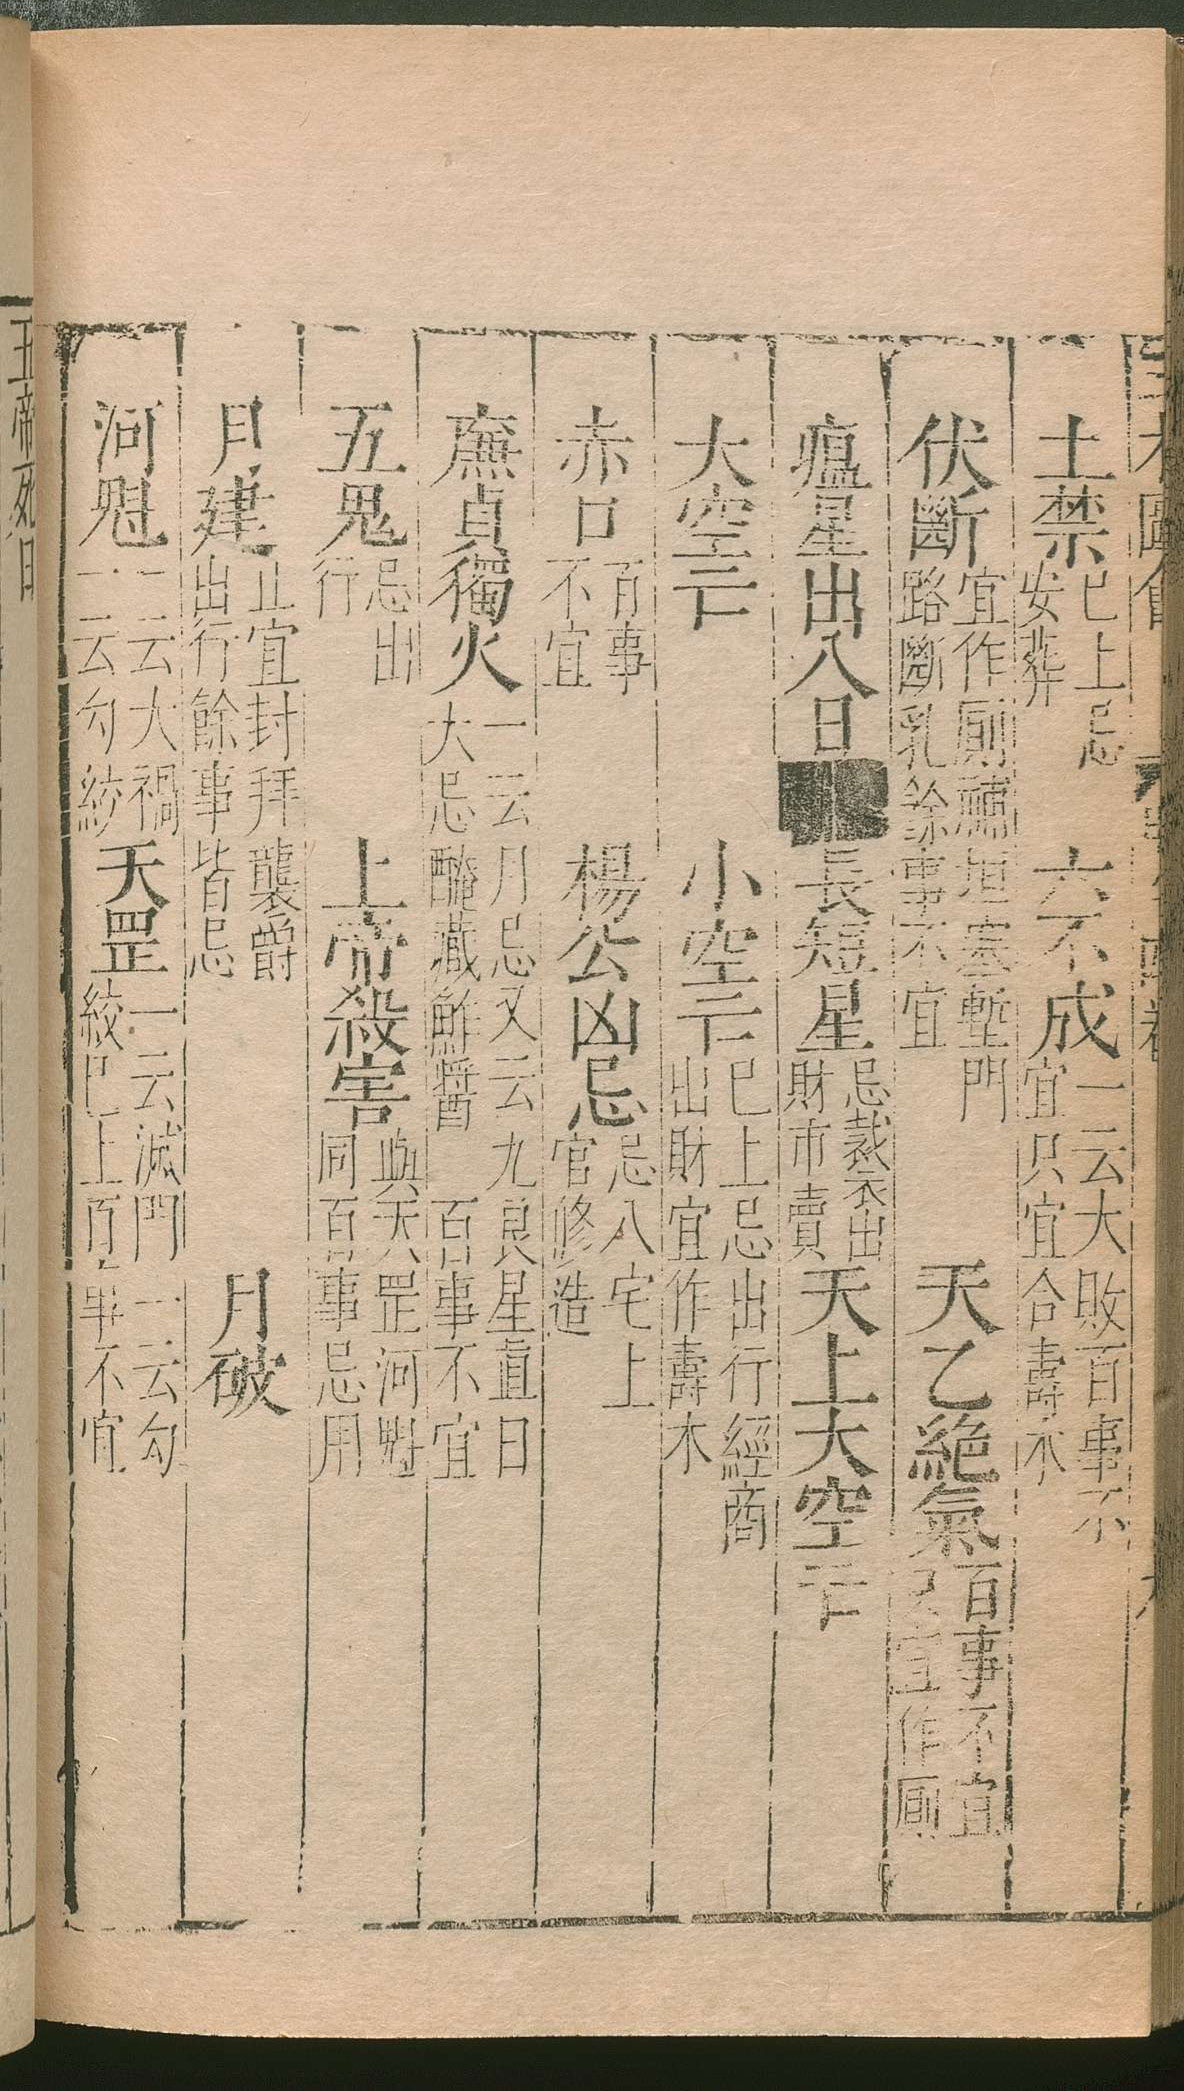 土禁巳上忌安葬 六不成一云大敗百事不宜只宜合壽木
伏斷宜作厠補垣塞塹門路斷乳餘事不宜 天乙絕氣百事不宜只宜作厠
瘟星出八日 長短星忌裁衣出財市賣 天上大空亡
大空亡 小空亡巳上忌出行經商出財宜作壽木
赤口百事不宜 楊公凶忌忌入宅上官修造
廉貞獨火一云月忌又云九良星直日大忌醃藏鮓醬百事不宜
五鬼忌出行 上帝殺害與天罡河魁同百事忌用
月建止宜封拜襲爵出行餘事皆忌 月破
河魁一云大禍一云勾絞 天罡一云滅門一云勾絞巳上百事不宜
五帝死日